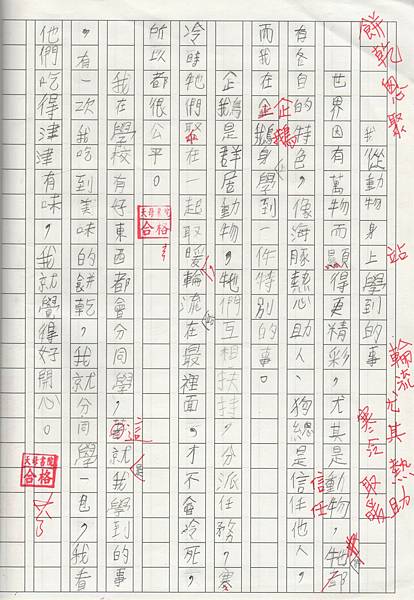 餅乾 恩 聚
我從動物身上學到的事
站 輪流 尤其熱助 取暖
世界因有萬物而顯得更精彩，尤其是動物，牠都
有各自的特色，像海豚熱心助人、狗總是信任他人，
信任
而我在企鵝身學到一件特別的事。
企鵝
企鵝是群居動物，牠們互相扶持，分派任務，寒
冷時牠們聚在一起取暖輪流在最裡面，才不會冷死，
所以都很公平。
合格
我在學校有好東西都會分同學，這就我學到的事
這
是
，有一次我吃到美味的餅乾，我就分同學一包，我看
他們吃得津津有味，我就覺得好開心。
合格